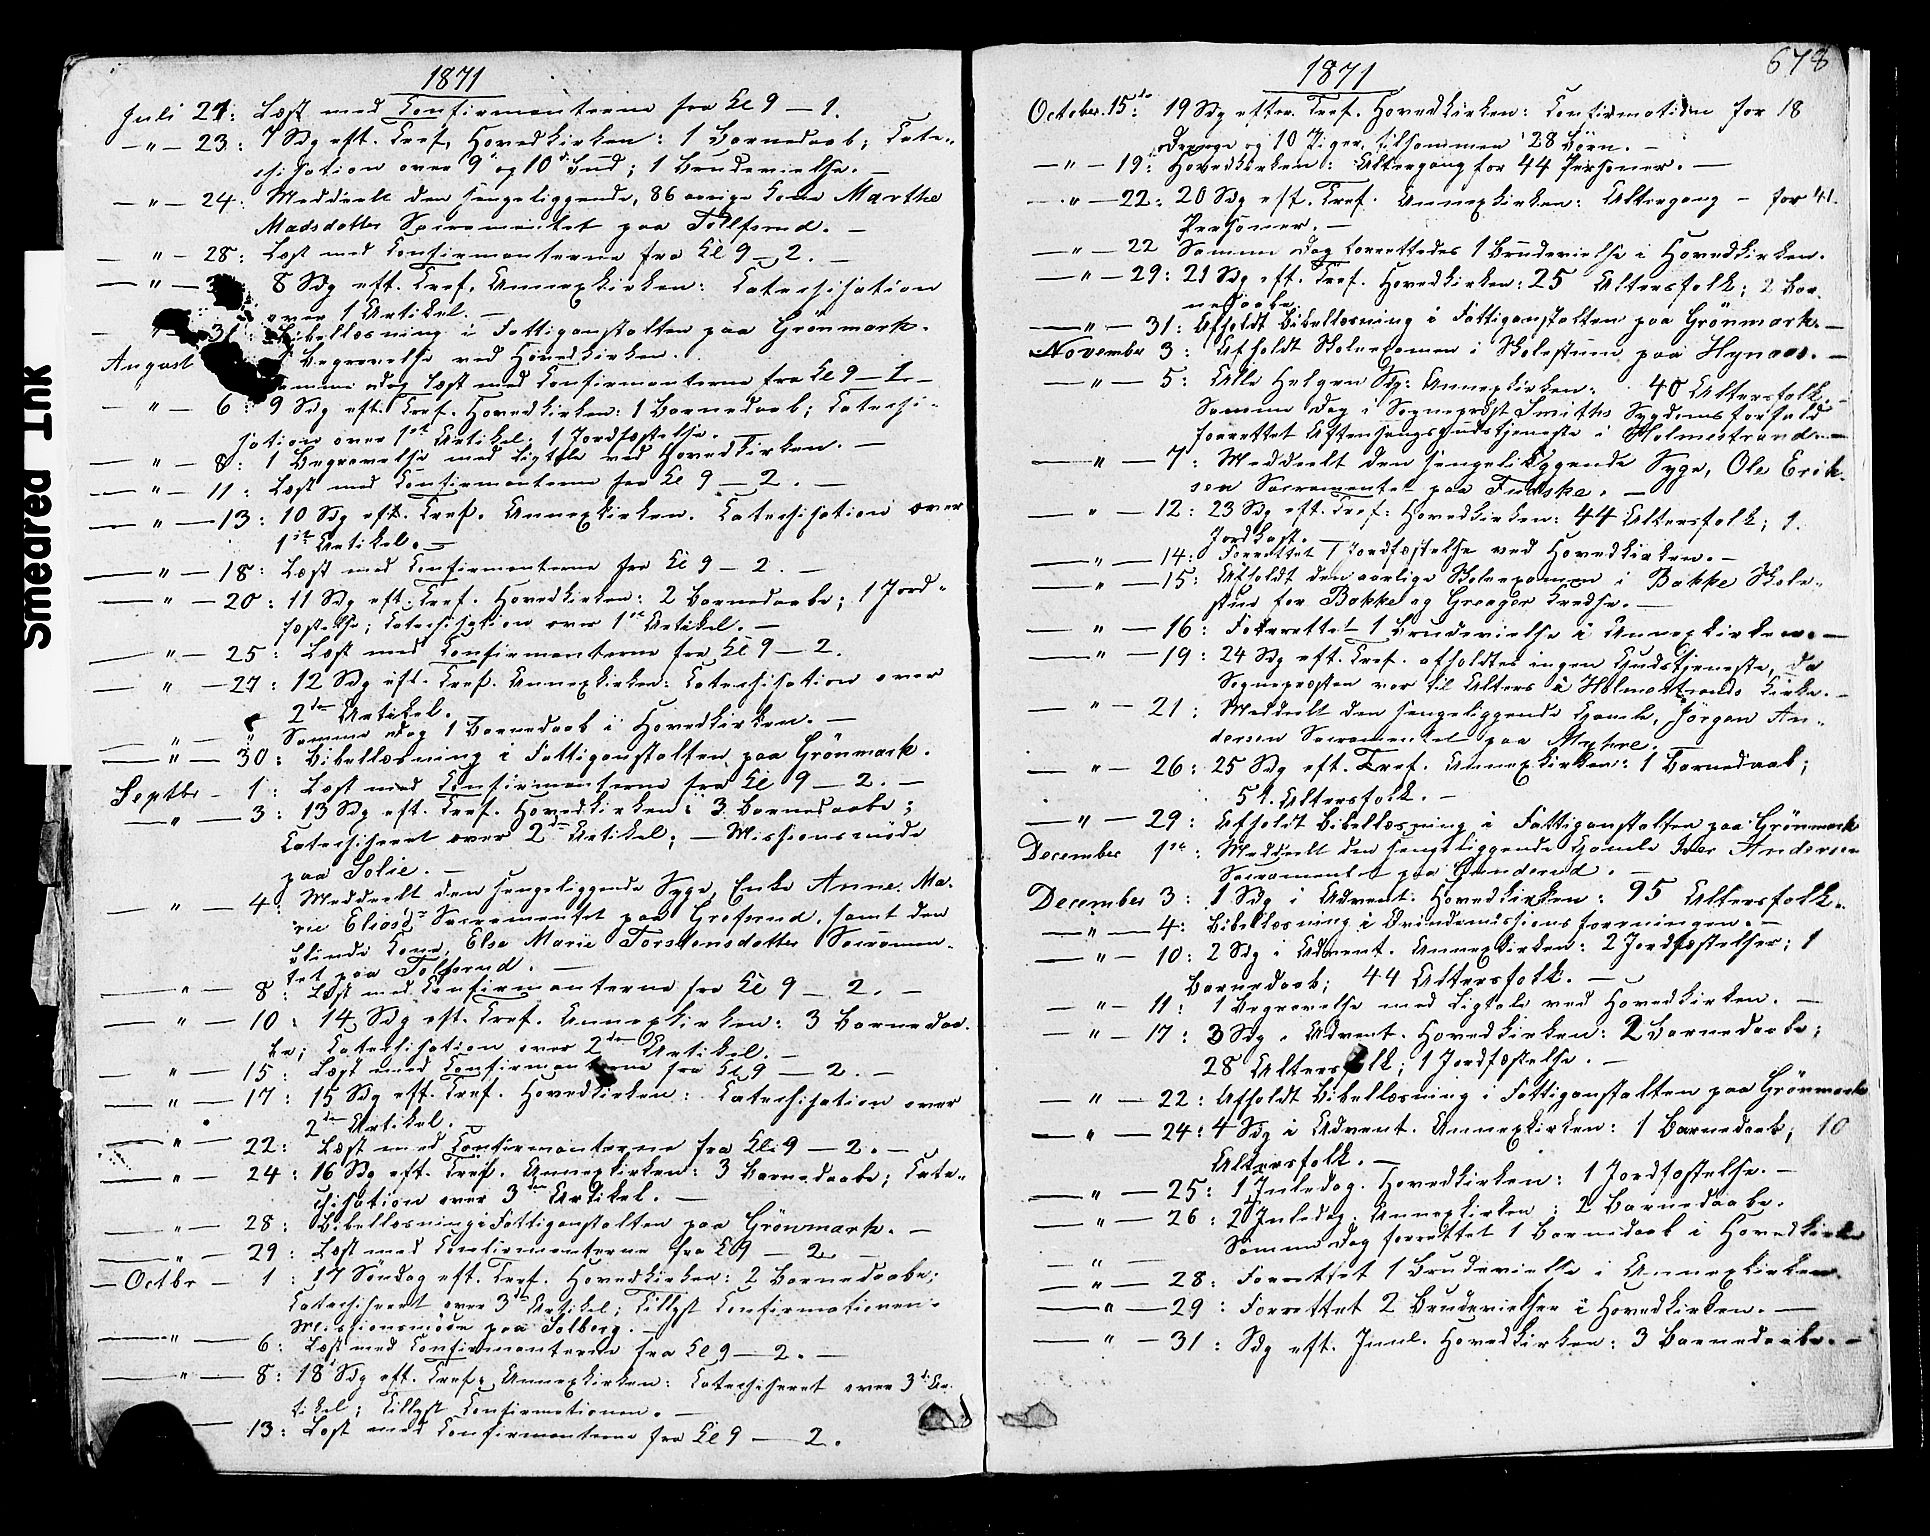 Smedred Ink
1871
Juli 21: Læst med Confirmanterne fra Kl 9 — 1.
— " — 23: 7 Sdg eft. Tref. Hovedkirken: 1 Barnedaab; Cate-
chisation over 9de og 10de Bud; 1 Brudevielse. —
— " — 24: Meddeelt den sengeliggende, 86 aarige Kone Marthe
Madsdatter Sacramentet paa Tollsrud. —
— " — 28: Læst med Confirmanterne fra Kl 9 — 2. —
— " — 8 Sdg eft. Tref. Annexkirken: Catechisation
over 1 Artikel. —
31: Bibellæsning i Fattiganstalten paa Grönmark.
August Begravelse ved Hovedkirken.
Samme Dag Læst med Confirmanterne fra Kl 9 — 1. —
— " — 6: 9 Sdg eft. Tref. Hovedkirken: 1 Barnedaab; Catechi-
sation over 1ste Artikel. 1 Jordfæstelse.
— " — 8: 1 Begravelse med Ligtale ved Hovedkirken. —
— " — 11: Læst med Confirmanterne fra Kl 9 — 2. —
— " — 13: 10 Sdg eft. Tref. Annexkirken. Catechisation over
1ste Artikel. —
— " — 18: Læst med Confirmanterne fra Kl 9 — 2. —
— " — 20: 11 Sdg eft. Tref. Hovedkirken: 2 Barnedaabe; 1 Jord-
fæstelse; Catechisation over 1ste Artikel. —
— " — 25: Læst med Confirmanterne fra Kl 9 — 2.
— " — 27: 12 Sdg eft. Tref. Annexkirken: Catechisation over
2den Artikel. —
— " — " Samme Dag 1 Barnedaab i Hovedkirken. —
— " — 30: Bibellæsning i Fattiganstalten paa Grönmark.
Septbr — 1: Læst med Confirmanterne fra Kl 9 — 2. —
— " — 3: 13 Sdg eft. Tref. Hovedkirken: 3 Barnedaabe;
Catechiseret over 2den Artikel; — Missionsmöde
paa Solie. —
— " — 4: Meddeelt den sengeliggende Syge, Enke Anne Ma-
rie Eliasdr Sacramentet paa Grefsrud, samt den
blinde Kone, Else Marie Torstensdatter Sacramen-
tet paa Tolfsrud. —
— " — 8: Læst med Confirmanterne fra Kl 9 — 2. —
— " — 10: 14 Sdg eft. Tref. Annexkirken: 3 Barnedaa-
be; Catechisation over 2den Artikel. —
— " — 15: Læst med Confirmanterne fra Kl 9 — 2. —
— " — 17: 15 Sdg eft. Tref. Hovedkirken: Catechisation over
2den Artikel. —
— " — 22: Læst med Confirmanterne fra Kl. 9 — 2. —
— " — 24: 16 Sdg eft. Tref. Annexkirken: 3 Barnedaabe; Cate-
chisation over 3die Artikel. —
— " — 28: Bibellæsning i Fattiganstalten paa Grönmark. —
— " — 29: Læst med Confirmanterne fra Kl 9 — 2. —
— Octbr — 1: 17 Söndag eft. Tref. Hovedkirken: 2 Barnedaabe;
Catechiseret over 3die Artikel; Tillyst Confirmationen.
Missionsmöde paa Solberg. —
— " — 6: Læst med Confirmanterne fra Kl 9 — 2. —
— " — 8: 18 Sdg eft. Tref. Annexkirken: Catechiseret over 3die Ar-
tikel; Tillyst Confirmationen. —
— 13: Læst med Confirmanterne fra Kl 9 — 2.
678
1871
October 15de: 19 Sdg efter Tref. Hovedkirken: Confirmation for 18
Drenge og 10 Piger, tilsammen 28 Börn. —
— " — 19: Hovedkirken: Altergang for 44 Personer. —
— " — 22: 20 Sdg eft. Tref. Annexkirken: Altergang — for 41.
Personer. —
— " — 22 Samme Dag forrettedes 1 Brudevielse i Hovedkirken.
— " — 29: 21 Sdg eft. Tref. Hovedkirken: 25 Altersfolk; 2 Bar-
nedaabe.
— " — 31: Afholdt Bibellæsning i Fattiganstalten paa Grönmark. —
November 3: Afholdt Skoleexamen i Skolestuen paa Hynaas. —
— " — 5: Alle Helgen Sdg: Annexkirken: 40 Altersfolk. —
Samme Dag i Sognepræst Smiths Sygdomsforfald
forrettet Aftensangsgudstjeneste i Holmestrand. —
— " — 7: Meddeelt den sengeliggende Syge, Ole Erik-
sen Sacramentet paa . —
— " — 12: 23 Sdg eft. Tref: Hovedkirken: 44 Altersfolk; 1.
Jordkast. —
— " — 14: Forrettet 1 Jordfæstelse ved Hovedkirken. —
— " — 15: Afholdt den aarlige Skoleexamen i Bakke Skole-
stue for Bakke og Greager Kredse. —
— " — 16: Forrettet 1 Brudevielse i Annexkirken. —
— " — 19: 24 Sdg eft. Tref. afholdtes ingen Gudstjeneste, da
Sognepræsten var til Alters i Holmestrands Kirke. —
— " — 21: Meddeelt den sengeliggende Gamle, Jörgen An-
dersen Sacramentet paa Myhre. —
— " — 26: 25 Sdg eft. Tref. Annexkirken: 1 Barnedaab;
51. Altersfolk. —
— " — 29: Afholdt Bibellæsning i Fattiganstalten paa Grönmark
December 1ste: Meddeelt den sengeliggende Gamle Iver Andersen
Sacramentet paa . —
December 3: 1 Sdg i Advent: Hovedkirken: 95 Altersfolk. —
— " — 4: Bibellæsning i Qvindemissionsforeningen. —
— " — 10: 2 Sdg i Advent. Annexkirken: 2 Jordfæstelser; 1
Barnedaab; 44 Altersfolk. —
— " — 11: 1 Begravelse med Ligtale ved Hovedkirken. —
— " — 17: 3 Sdg i Advent. Hovedkirken: 2 Barnedaabe;
28 Altersfolk; 1 Jordfæstelse. —
— " — 22: Afholdt Bibellæsning i Fattiganstalten paa Grönmark
— " — 24: 4 Sdg i Advent. Annexkirken: 1 Barnedaab; 10
Altersfolk. —
— " — 25: 1 Juledag. Hovedkirken: 1 Jordfæstelse. —
— " — 26: 2 Juledag. Annexkirken: 2 Barnedaabe.
— " — Samme Dag forrettet 1 Barnedaab i Hovedkirke
— " — 28: Forrettet 1 Brudevielse i Annexkirken.
— " — 29: Forrettet 2 Brudevielser i Hovedkirken. —
— " — 31: Sdg eft. Juul. Hovedkirken: 3 Barnedaabe. —